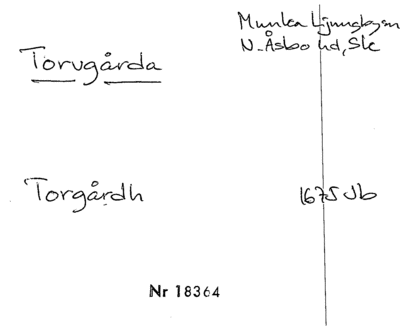 Munka Ljungby sn
N. Åsbo hd, Sk
Torugårda
Torgårdh
1675 Jb
Nr 18364